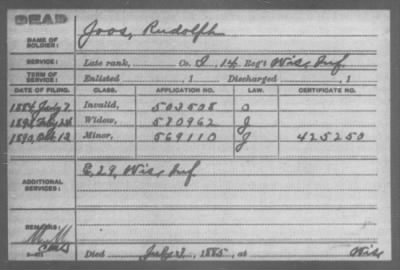 DEAD
NAME OF SOLDIER: Joos, Rudolph
SERVICE: Late rank, Co. I, 14 Reg't Wis. Inf.
TERM OF SERVICE: Enlisted , 1 Discharged , 1
DATE OF FILING. CLASS. APPLICATION NO. LAW. CERTIFICATE NO.
1884 July 7. Invalid, 503508 O
Widow, 570962 J
1890, Oct. 13 Minor, 569110 J 425250
ADDITIONAL SERVICES: E. 29, Wis. Inf.
REMARKS:
Died July 3, 1885, at Wis